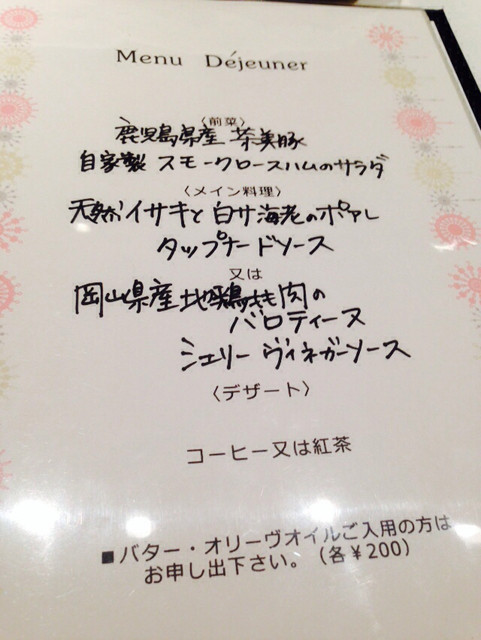 Menu Déjeuner
〈前菜〉
鹿児島県産 茶美豚
自家製 スモークロースハムのサラダ
〈メイン料理〉
天然イサキと白サ海老のポアレ
タップナードソース
又は
岡山県産地鶏もも肉の
バロティーヌ
シェリーヴィネガーソース
〈デザート〉
コーヒー又は紅茶
■バター・オリーヴオイルご入用の方は
お申し出下さい。(各¥200)